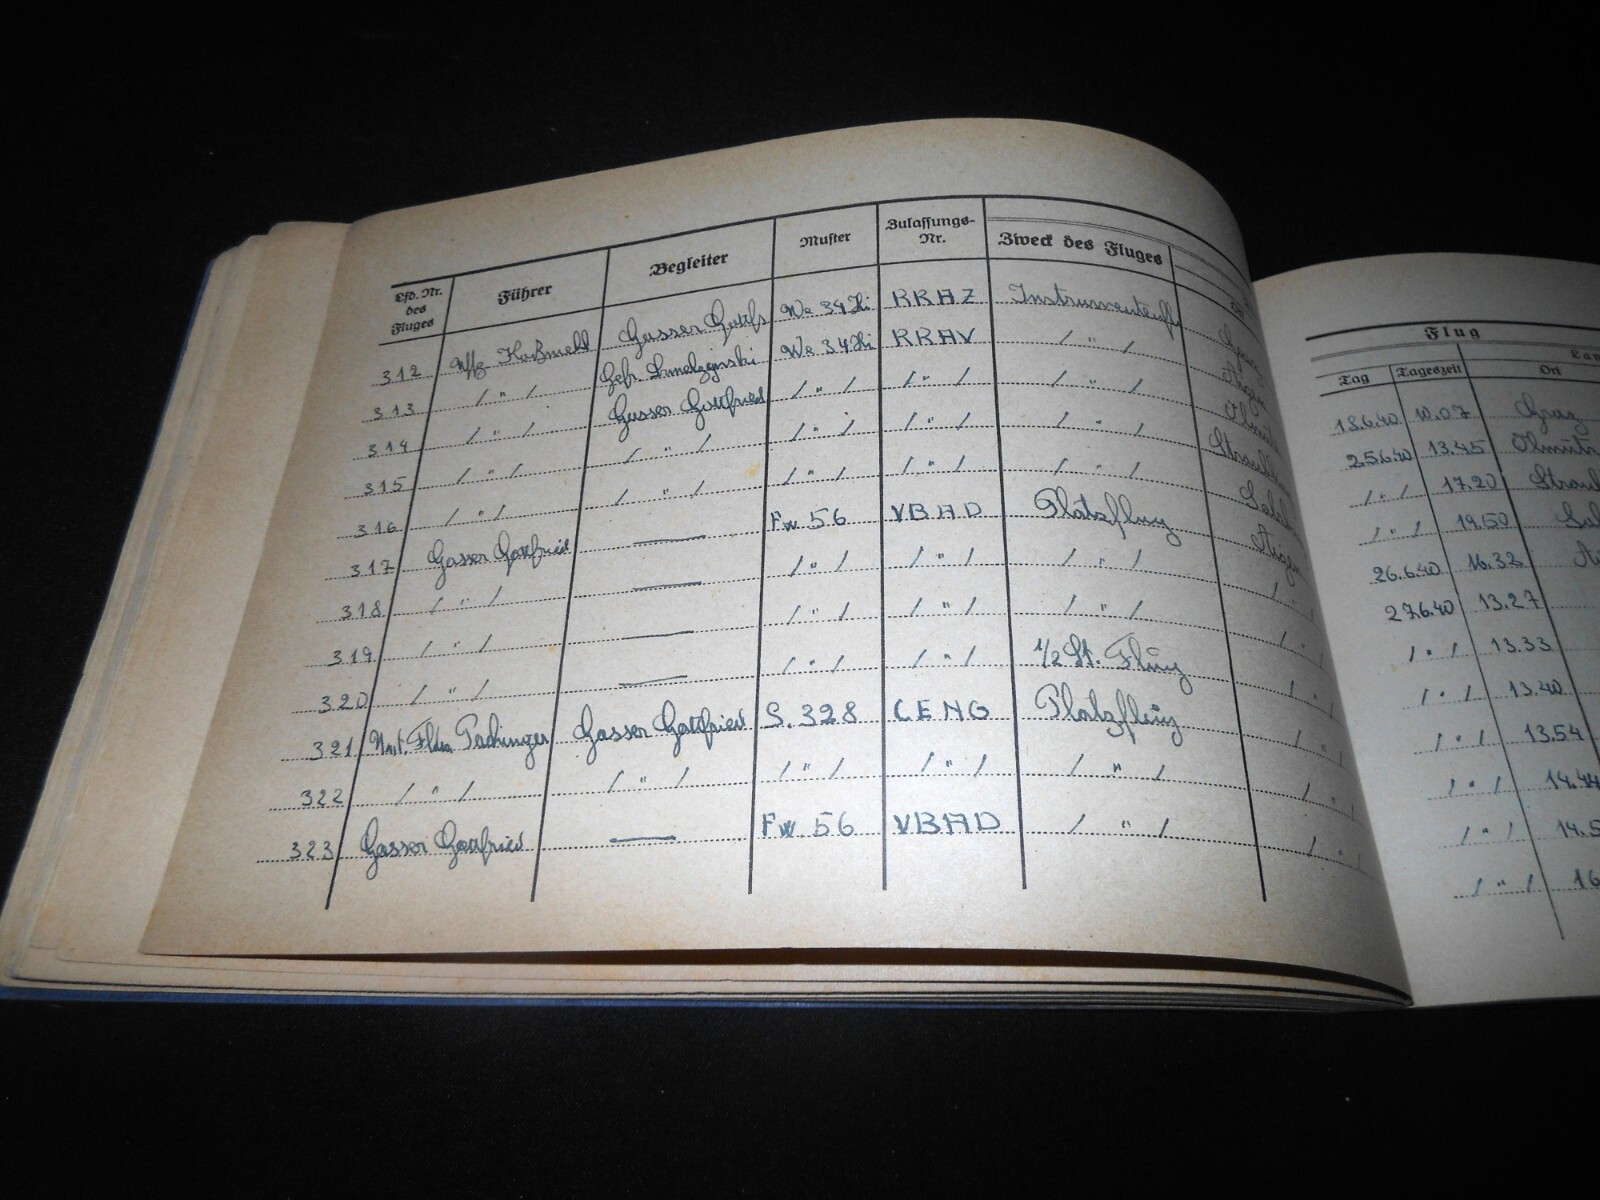 Lfd. Nr. des Fluges Führer Begleiter Muster Zulassungs-Nr. Zweck des Fluges
312 Gasser We 34 Hi RRAZ
313 / " / Gefr. We 34 Hi RRAV / " /
314 / " / Gasser Gottfried / " / / " / / " /
315 / " / / " / / " / / " / / " /
316 / " / / " / / " / / " / / " /
317 Gasser Gottfried — Fw 56 VBAD Platzflug Aigen
318 / " / — / " / / " / / " / / " /
319 / " / — / " / / " / / " / / " /
320 / " / — / " / / " / 1/2 St. Flug / " /
321 Gasser Gottfried S. 328 CENG Platzflug / " /
322 / " / / " / / " / / " / / " / / " /
323 Gasser Gottfried — Fw 56 VBAD / " / / " /
Flug
Tag Tageszeit Ort
18.6.40 10.07 Graz
25.6.40 13.45 Olmütz
/ " / 17.20
/ " / 19.50
26.6.40 16.32
27.6.40 13.27
/ " / 13.33
/ " / 13.40
/ " / 13.54
/ " / 14.44
/ " /
/ " /